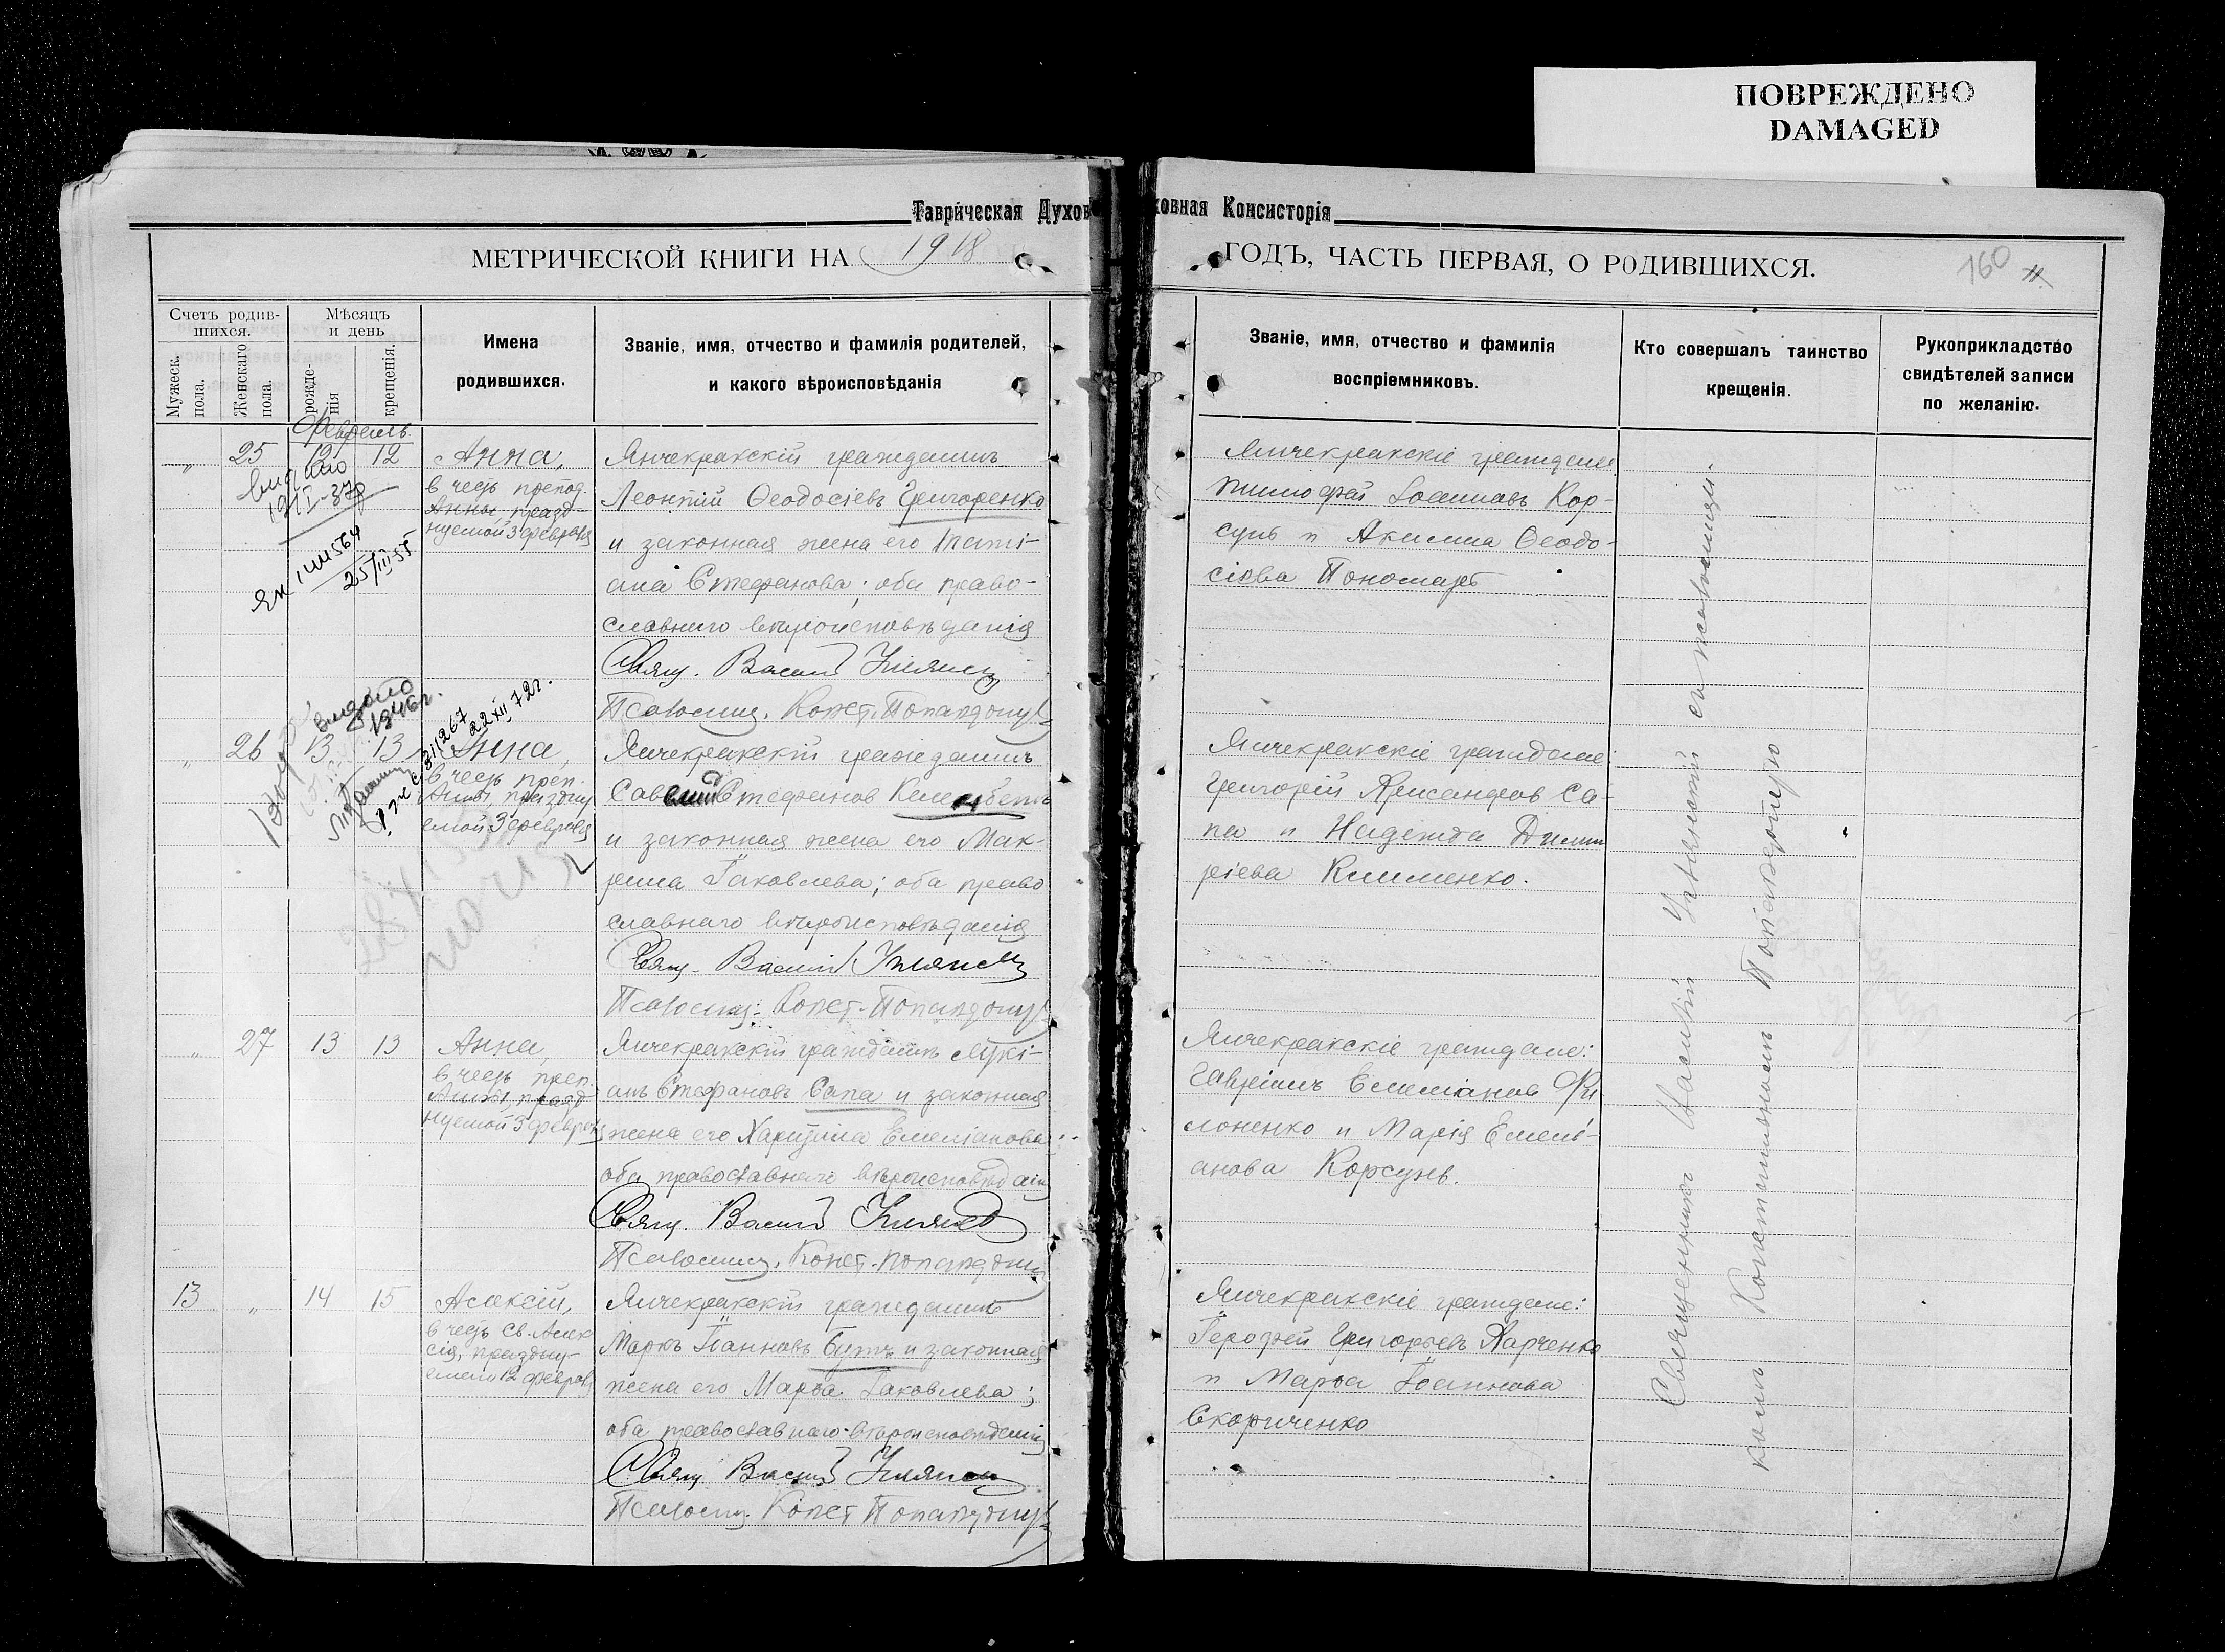 ПОВРЕЖДЕНО
DAMAGED
Таврическая Духов
ховная Консисторія
МЕТРИЧЕСКОЙ КНИГИ НА 1918
ГОДЪ, ЧАСТЬ ПЕРВАЯ, О РОДИВШИХСЯ.
160
Счетъ родив-
шихся.
Мужеск.
пола.
Женскаго
пола.
Мѣсяцъ
и день
рожде-
нія
крещенія.
Имена
родившихся.
Званіе, имя, отчество и фамилія родителей,
и какого вѣроисповѣданія
Званіе, имя, отчество и фамилія
воспріемниковъ.
Кто совершалъ таинство
крещенія.
Рукоприкладство
свидѣтелей записи
по желанію.
Февраль.
„ 25 12 12
Анна,
в честь препод.
Анны, празд-
нуемой 3 февраля
25/III 55
Янчекракскій гражданинъ
Леонтій Ѳеодосіевъ Григоренко
и законная жена его Тати-
ана Стефанова; оба право-
славнаго вѣроисповѣданія
Свящ. Василій
Псаломщ. Конст.
Янчекракскіе граждане
Тимофей Іоанновъ Кор-
сунь и Акилина Ѳеодо-
сіева Пономарь
выдано
1946г.
22 XII 72г.
„ 26 13 13
Анна,
в честь преп.
Анны, праздну
емой 3 февраля
Янчекракскій гражданинъ
Стефанов
и законная жена его Мак-
рина Іаковлева; оба право
славнаго вѣроисповѣданія
Свящ. Василій
Псаломщ. Конст.
Янчекракскіе граждане
Григорій Александров Са-
па и Надежда Димит
ріева Клименко.
„ 27 13 13
Анна,
в честь преп.
Анны, празд-
нуемой 3 февраля
Янчекракскій гражданинъ Лукі-
анъ Стефановъ Сапа и законная
жена его Харитина Емеліанова
оба православнаго вѣроисповѣданія
Свящ. Василій
Псаломщ. Конст.
Янчекракскіе граждане:
Гавріилъ Емеліанов Фи
лоненко и Марія Емель-
анова Корсунь.
13 „ 14 15
Алексій,
в честь Св. Алек
сія, праздну-
емаго 12 февраля
Янчекракскій гражданинъ
Маркъ Іоанновъ Бутъ и законная
жена его Марѳа Іаковлева;
оба православнаго вѣроисповѣданія
Свящ. Василій
Псаломщ. Конст
Янчекракскіе граждане:
Іерофей Григорьевъ Харченко
и Марѳа Іоаннова
Скориченко
Священникъ Василій
съ псаломщи-
комъ Константиномъ